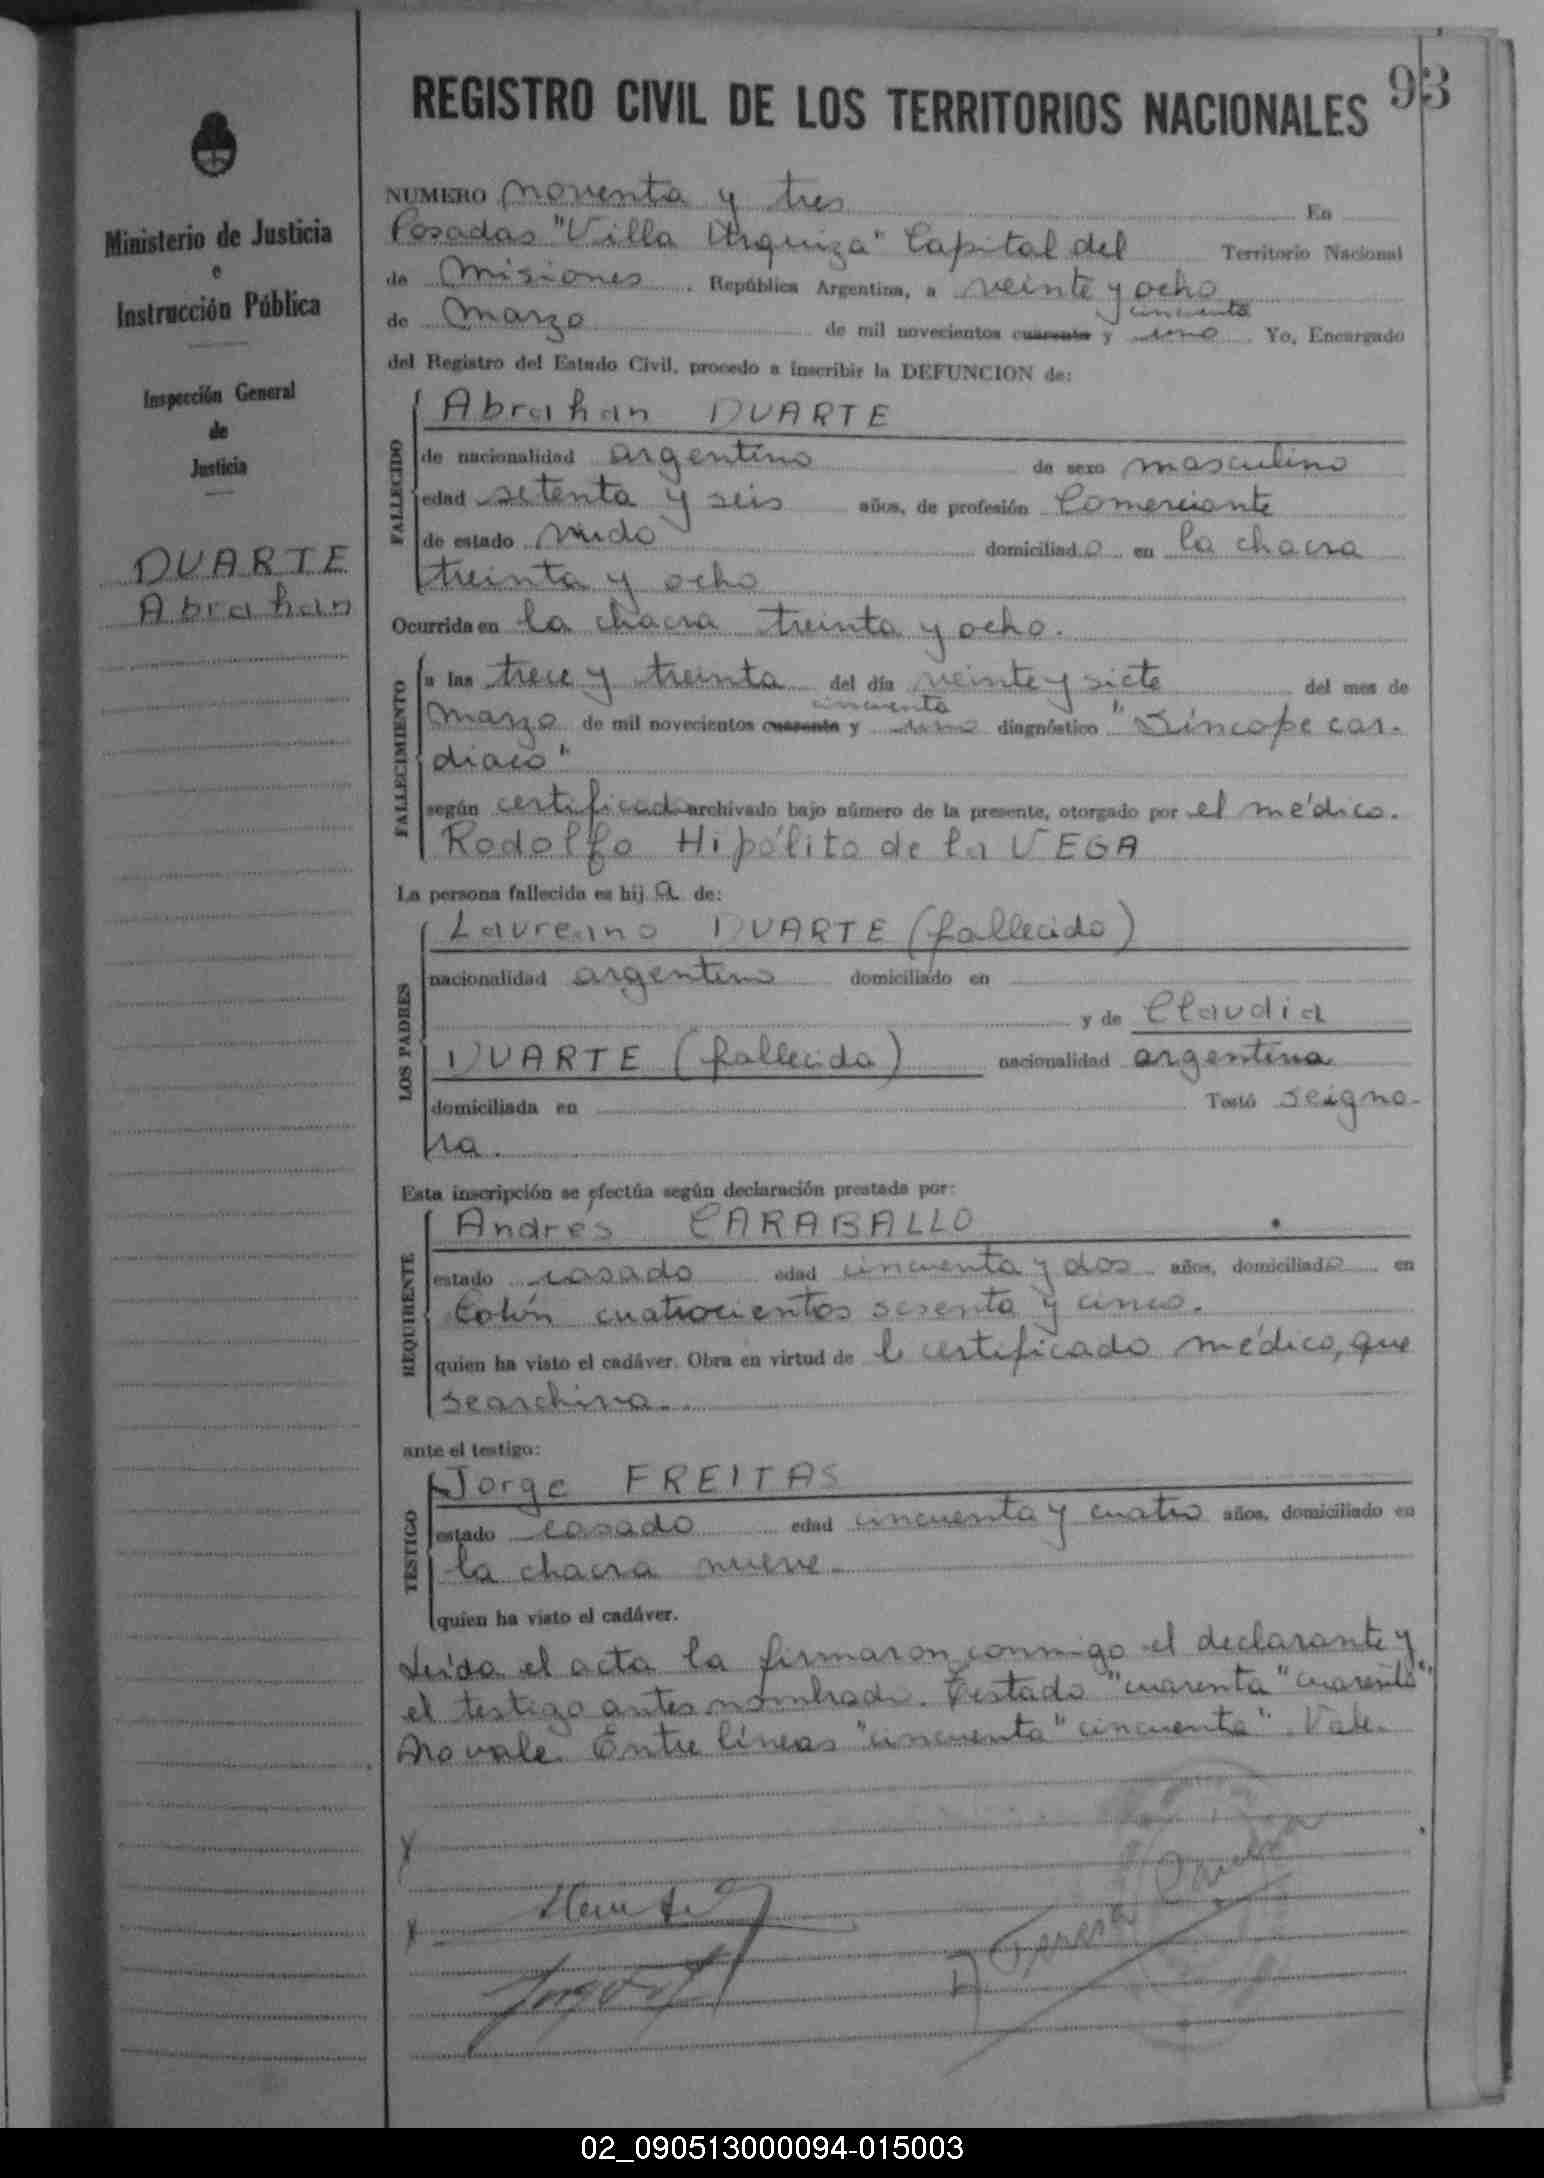 93
REGISTRO CIVIL DE LOS TERRITORIOS NACIONALES
Ministerio de Justicia
e
Instrucción Pública
Inspección General
de
Justicia
DUARTE
Abrahan
NUMERO noventa y tres En
Posadas "Villa Urquiza" Capital del Territorio Nacional
de Misiones, República Argentina, a veinte y ocho
cincuenta
de Marzo de mil novecientos cuarenta y uno. Yo, Encargado
del Registro del Estado Civil, procedo a inscribir la DEFUNCION de:
FALLECIDO
Abrahan DUARTE
de nacionalidad argentino de sexo masculino
edad setenta y seis años, de profesión Comerciante
de estado viudo domiciliado en la chacra
treinta y ocho
Ocurrida en la chacra treinta y ocho.
FALLECIMIENTO
a las trece y treinta del día veinte y siete del mes de
cincuenta
Marzo de mil novecientos cuarenta y uno diagnóstico "Síncope car-
diaco"
según certificado archivado bajo número de la presente, otorgado por el médico.
Rodolfo Hipólito de la VEGA
La persona fallecida es hij a de:
LOS PADRES
Laureano DUARTE (fallecido)
nacionalidad argentino domiciliado en
y de Claudia
DUARTE (fallecida) nacionalidad argentina
domiciliada en Testó seigno-
ra.
Esta inscripción se efectúa según declaración prestada por:
REQUIRENTE
Andrés CARABALLO
estado casado edad cincuenta y dos años, domiciliado en
Colón cuatrocientos sesenta y cinco.
quien ha visto el cadáver. Obra en virtud de l certificado médico, que
se archiva.
ante el testigo:
TESTIGO
Jorge FREITAS
estado casado edad cincuenta y cuatro años, domiciliado en
la chacra nueve
quien ha visto el cadáver.
Leída el acta la firmaron conmigo el declarante y
el testigo antes nombrado. Testado "cuarenta" cuarenta"
No vale. Entre líneas "cincuenta" cincuenta". Vale.
02_090513000094-015003